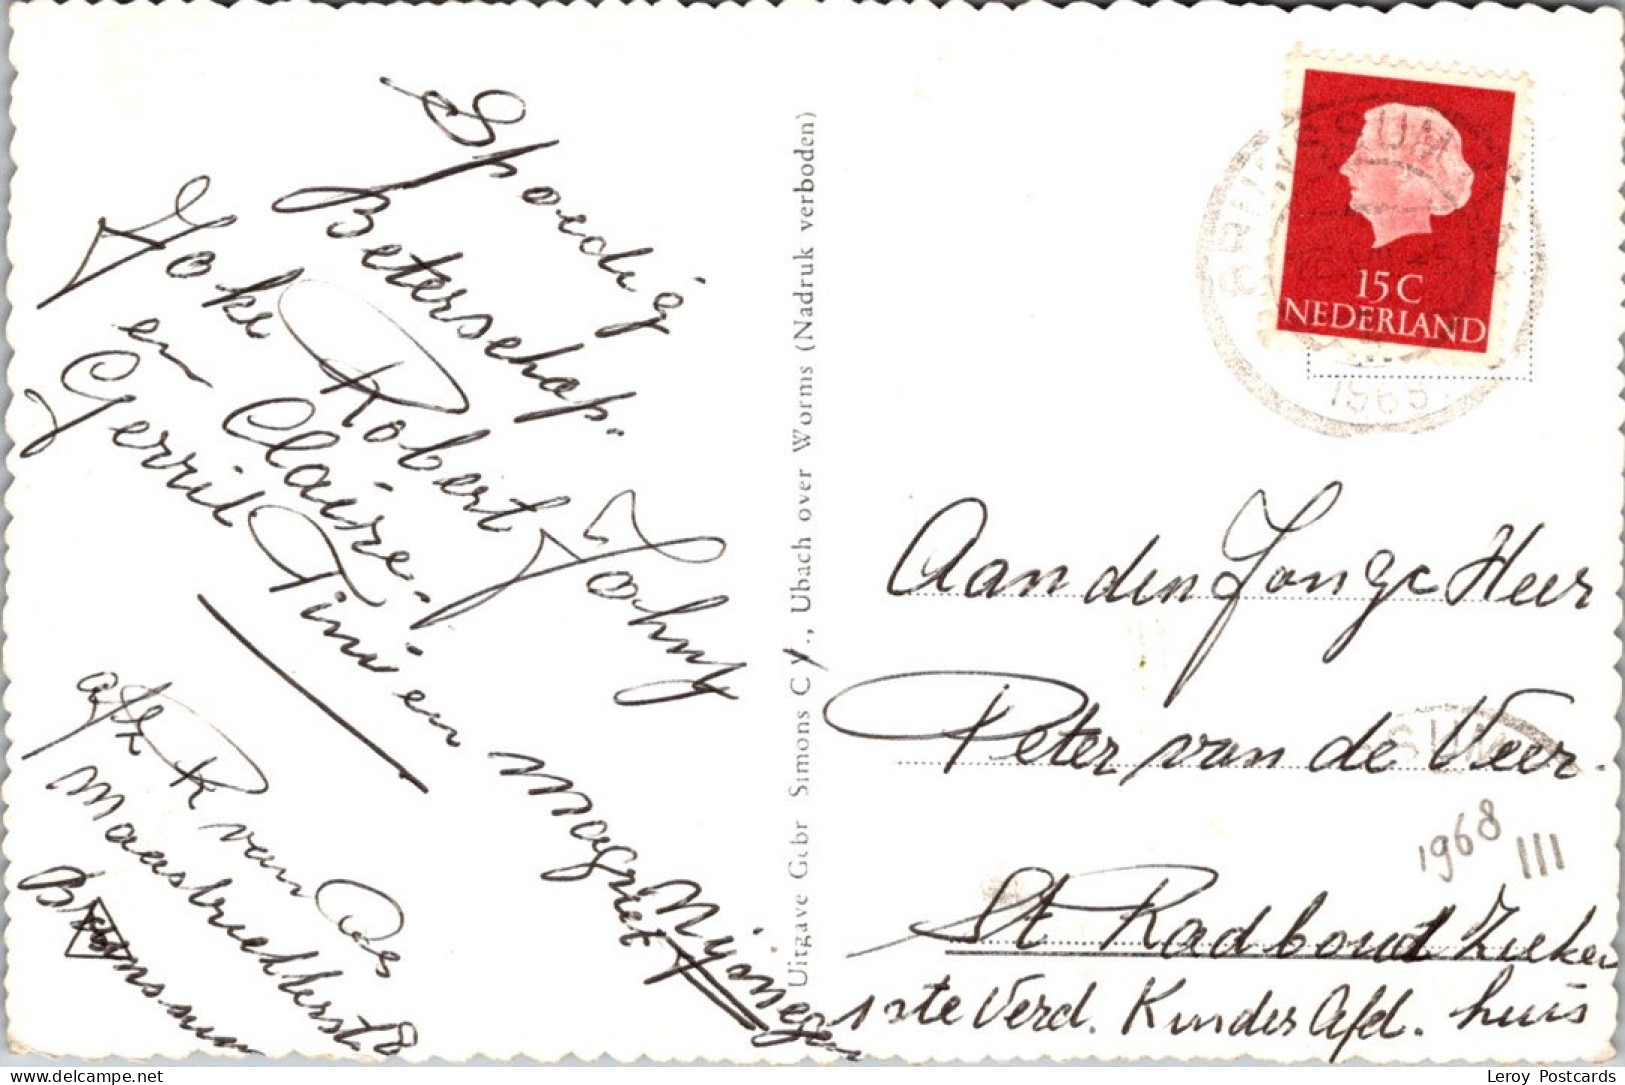 Spoedig
Beterschap.
Joke Robert Johny
en Claire.
Gerrit Tini en Magriet
afz R van Oes
Maasbreehterst. 8
Brunssum
Uitgave Gebr Simons C.V., Ubach over Worms (Nadruk verboden)
BRUNSSUM
1968
15 C
NEDERLAND
Aan den Jonge Heer
Peter van de Veer.
SSUM
1968
III
St Radboud Zieken
huis
1ste Verd. Kinder Afd.
Nijmegen
Leroy Postcards